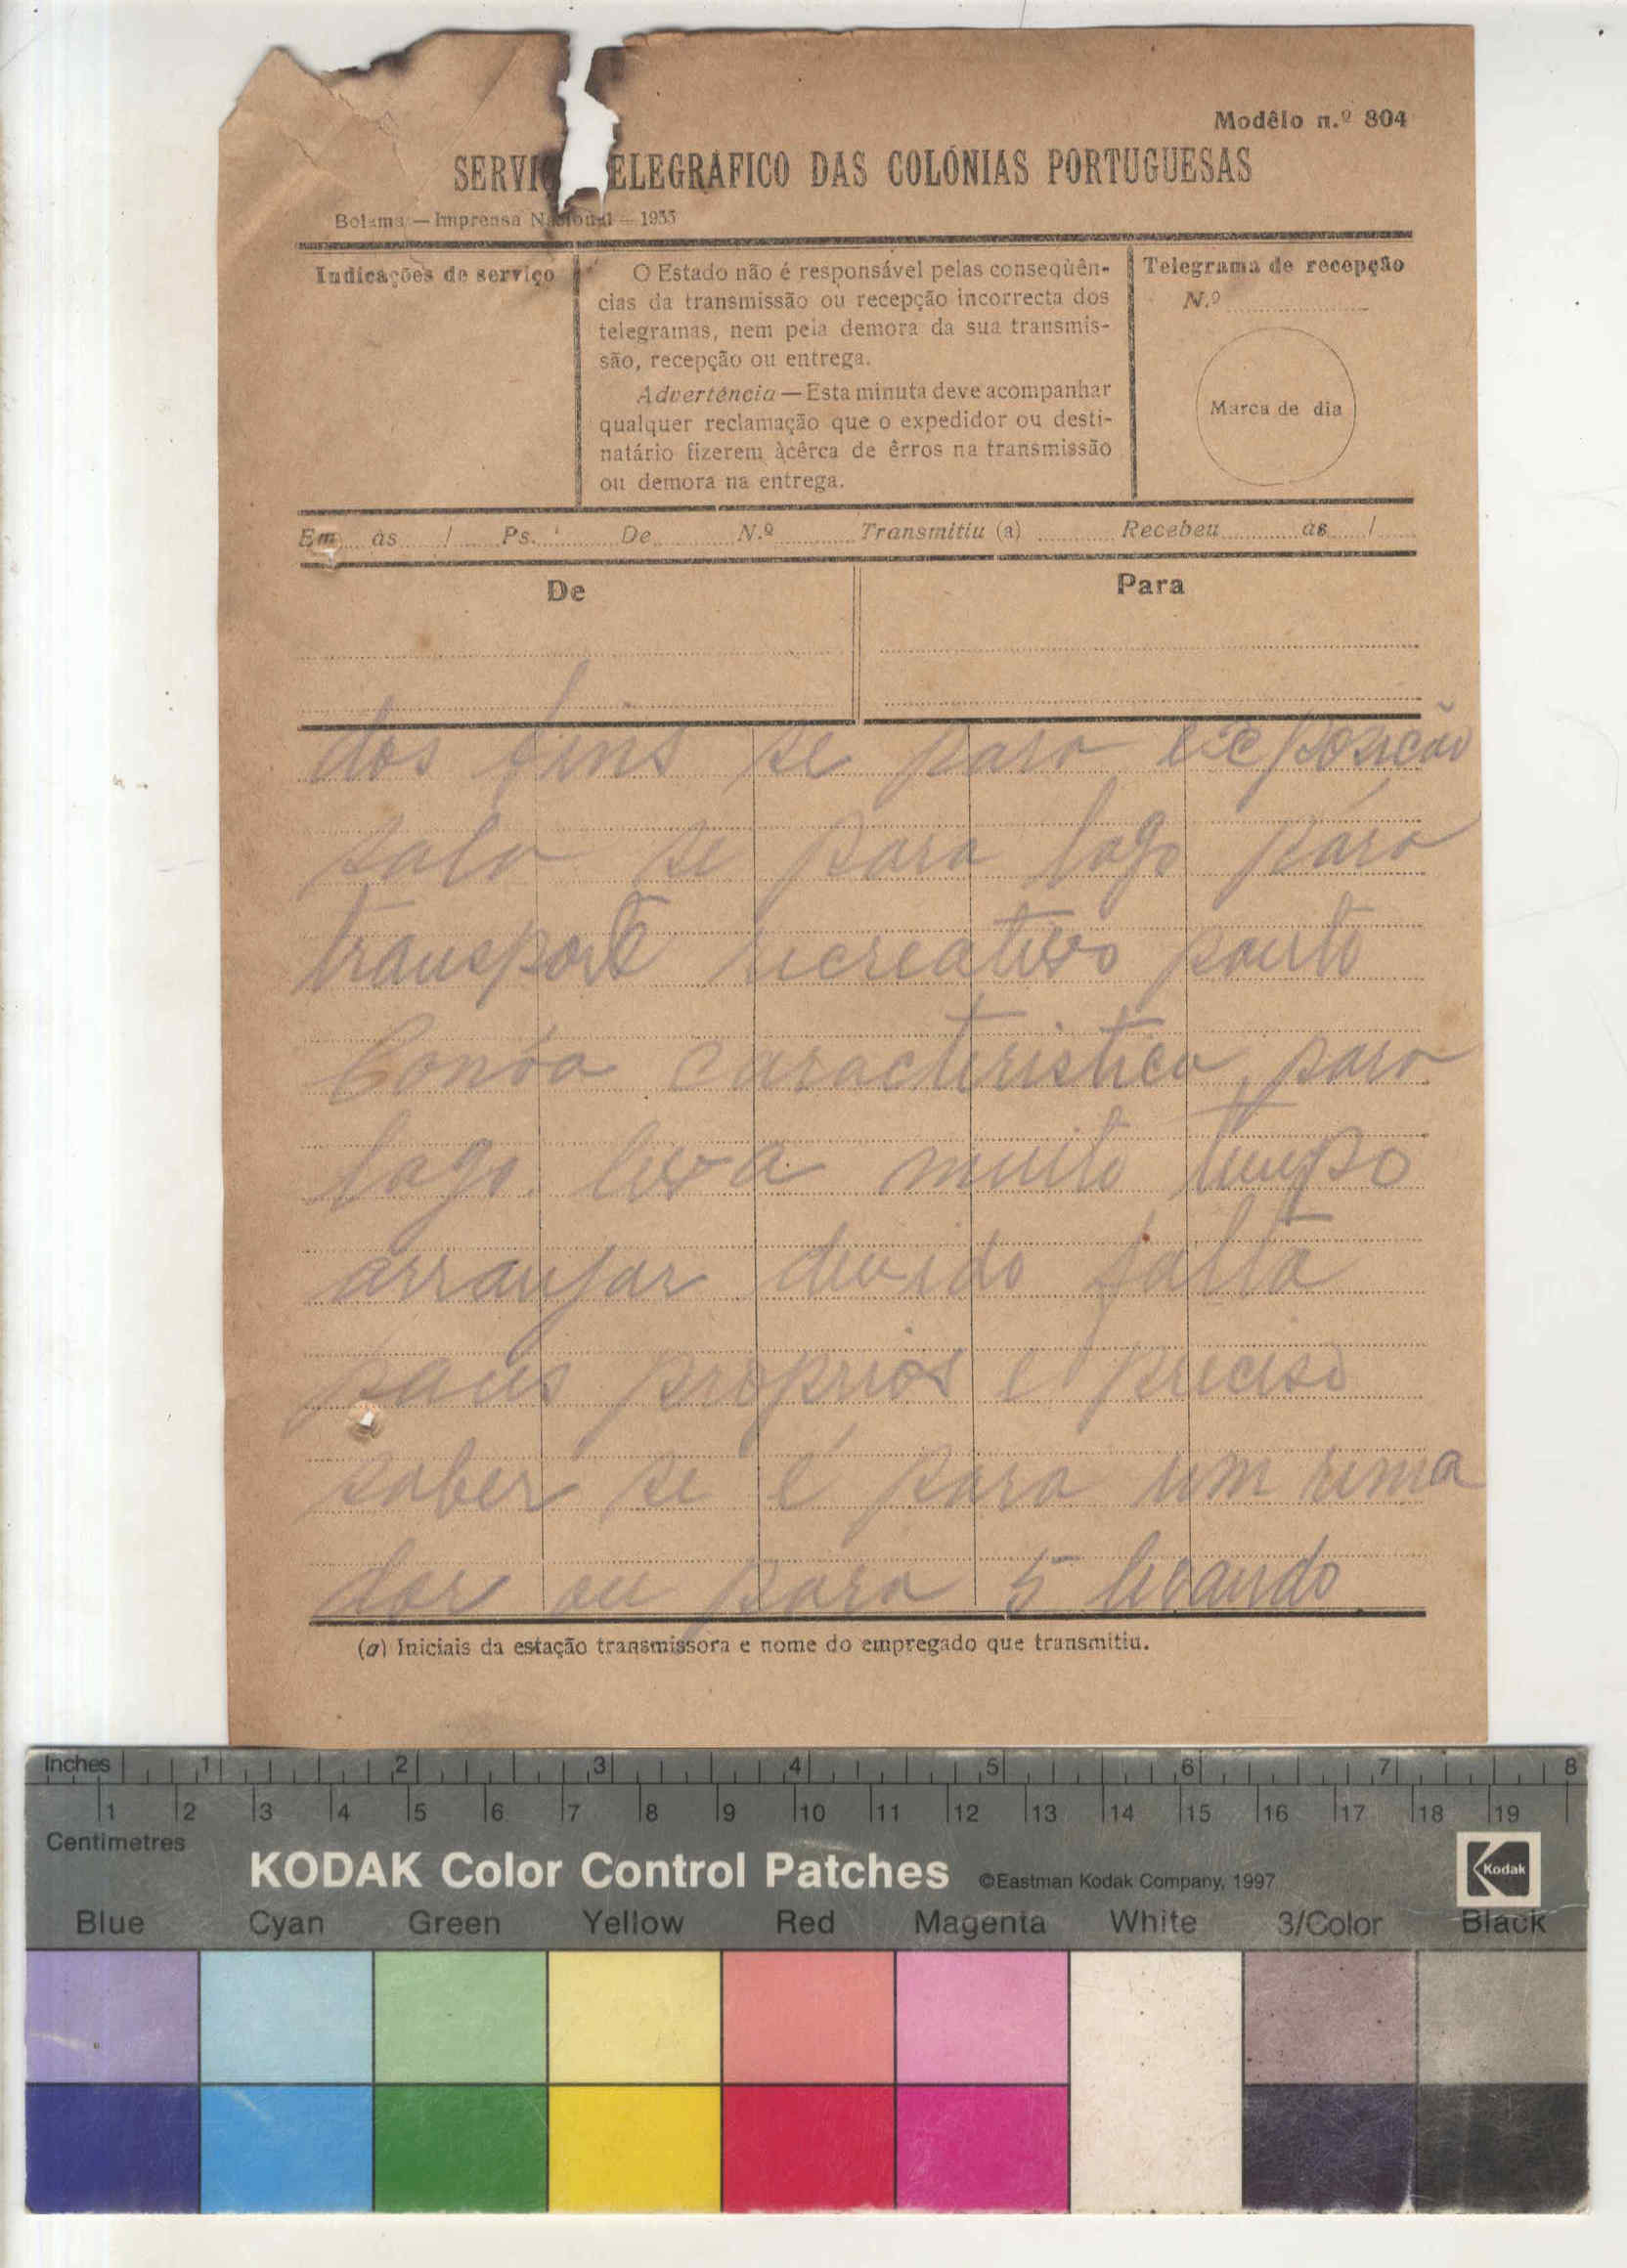 Modêlo n.º 804
SERVIÇ ELEGRÁFICO DAS COLÓNIAS PORTUGUESAS
Bolama — Imprensa Nacional — 1935
Indicações de serviço
O Estado não é responsável pelas conseqüên-
cias da transmissão ou recepção incorrecta dos
telegramas, nem pela demora da sua transmis-
são, recepção ou entrega.
Advertência — Esta minuta deve acompanhar
qualquer reclamação que o expedidor ou desti-
natário fizerem àcêrca de êrros na transmissão
ou demora na entrega.
Telegrama de recepção
N.º
Marca de dia
Em às / Ps. De N.º Transmitiu (a) Recebeu às /
De
Para
dos fins se para exposição
sala se para lago para
transporte recreativo ponto
Canôa caracteristica para
lago leva muito tempo
arranjar devido falta
paus proprios e preciso
saber se é para um rema
dor ou para 5 levando
(a) Iniciais da estação transmissora e nome do empregado que transmitiu.
Inches 1 2 3 4 5 6 7 8
1 2 3 4 5 6 7 8 9 10 11 12 13 14 15 16 17 18 19
Centimetres
KODAK Color Control Patches ©Eastman Kodak Company, 1997
Kodak
Blue Cyan Green Yellow Red Magenta White 3/Color Black